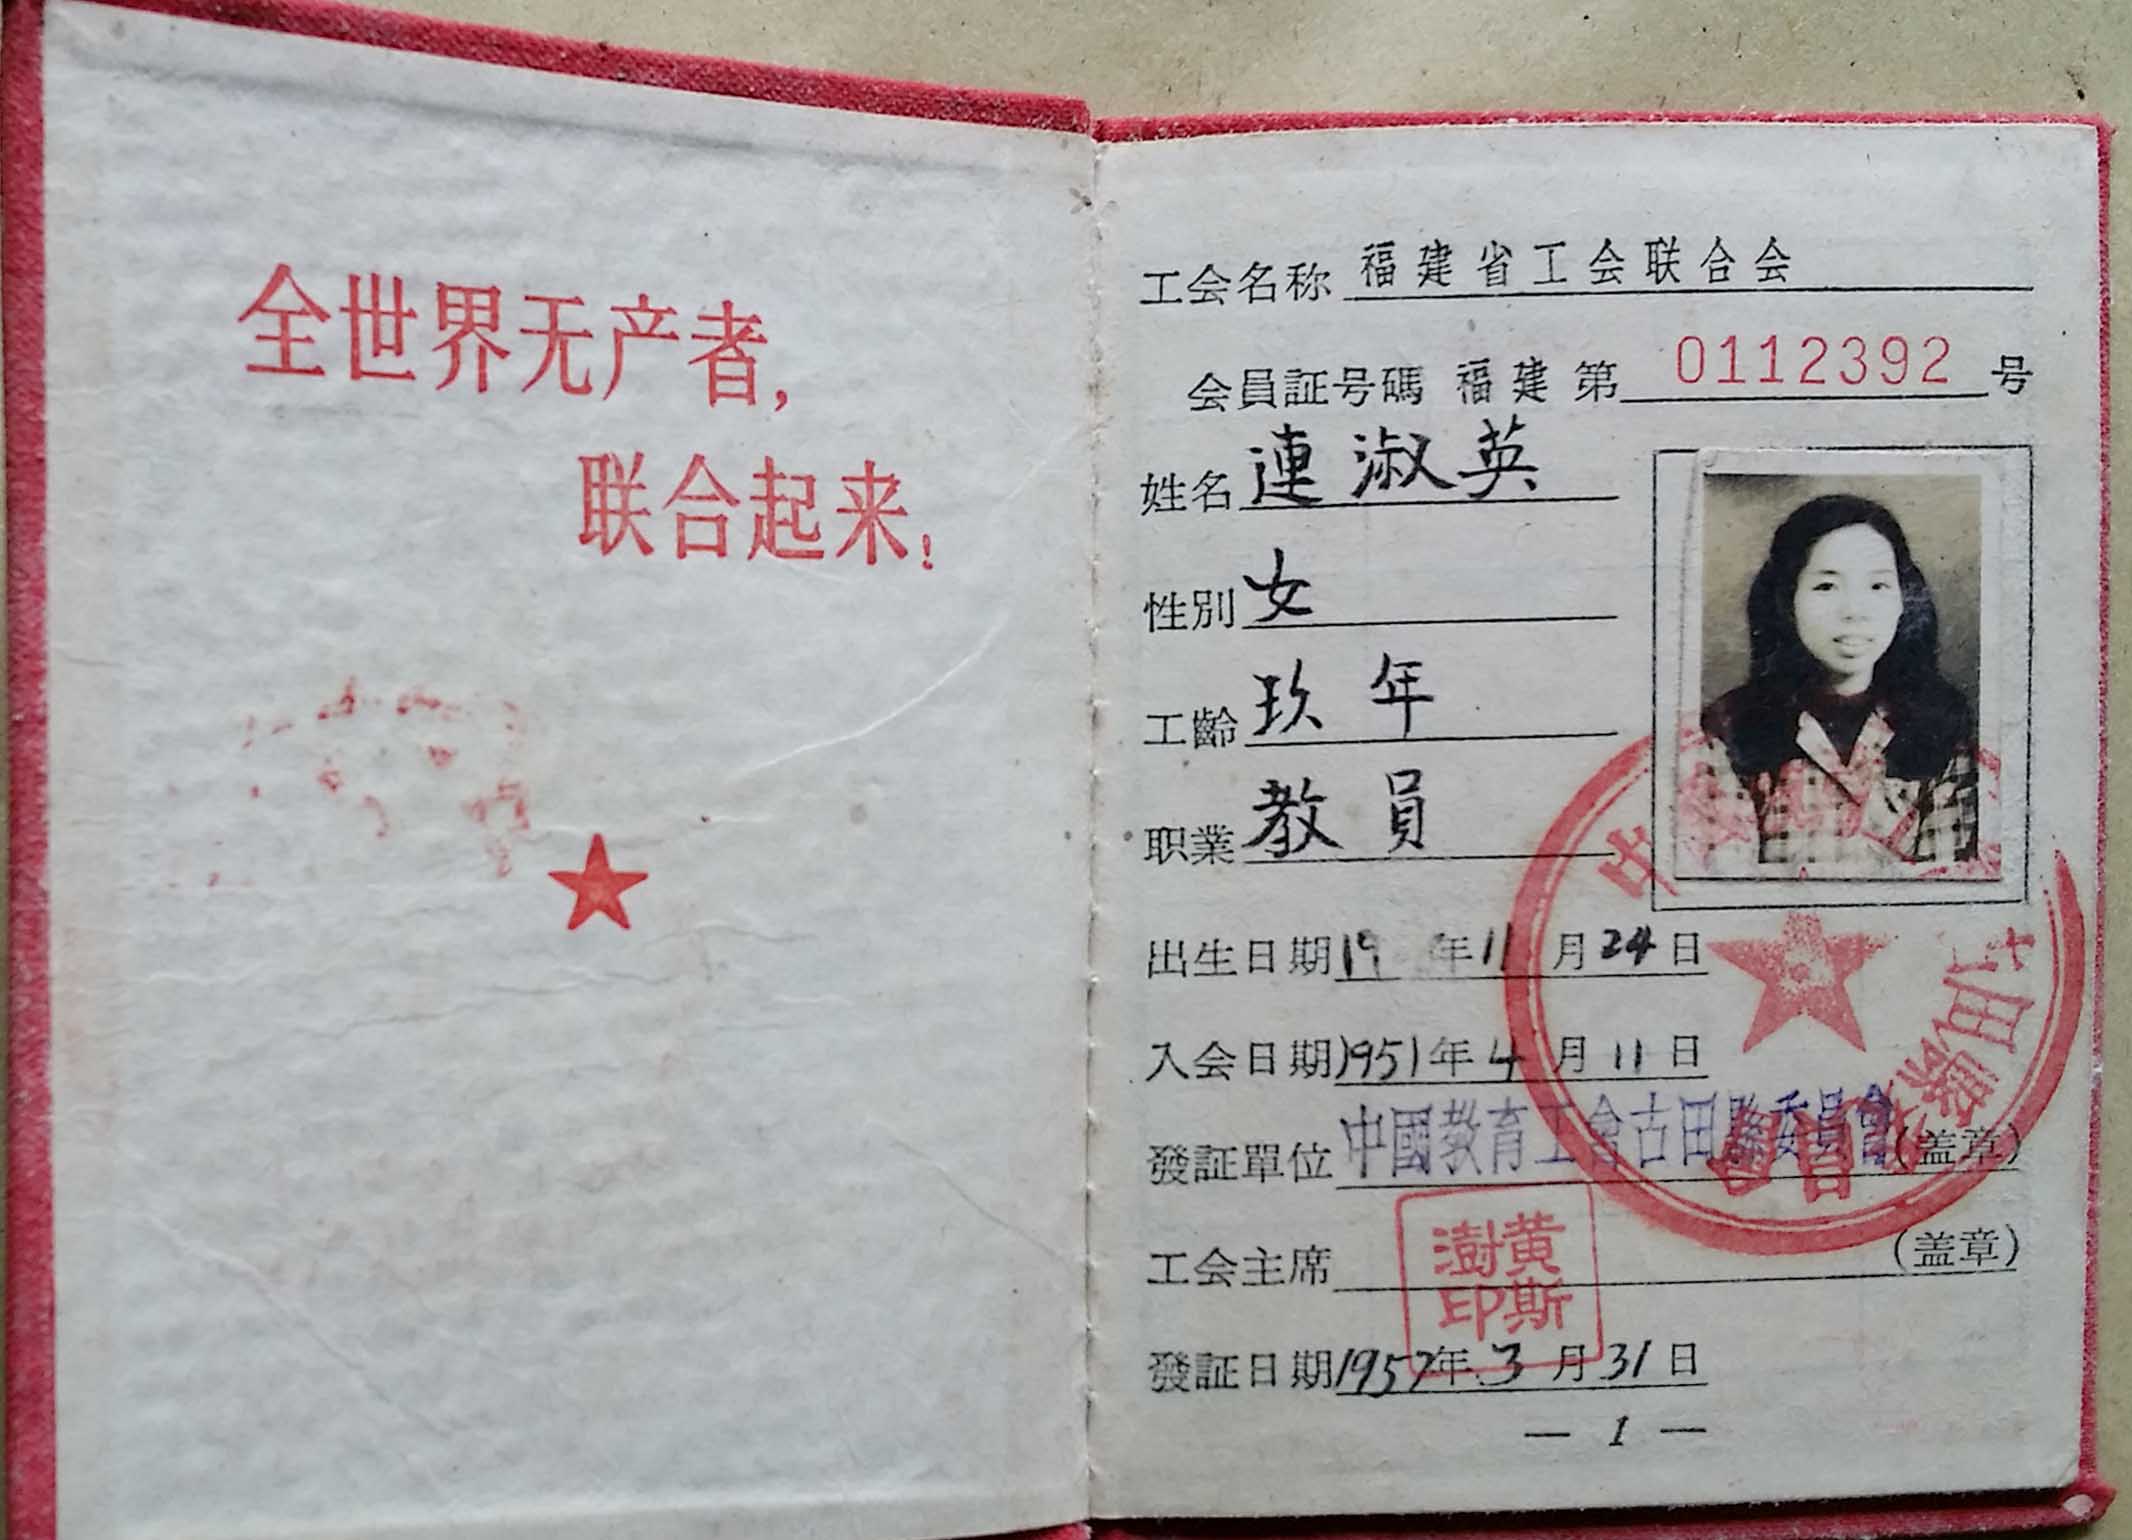 全世界无产者，
联合起来！
工会名称 福建省工会联合会
会員証号碼 福建 第 0112392 号
姓名 連淑英
性別 女
工齡 玖年
职業 教員
出生日期 19 年 11 月 24 日
入会日期 1951 年 4 月 11 日
發証單位 中國教育工會古田縣委員會 (盖章)
工会主席 (盖章)
黄斯澍印
發証日期 1957 年 3 月 31 日
— 1 —